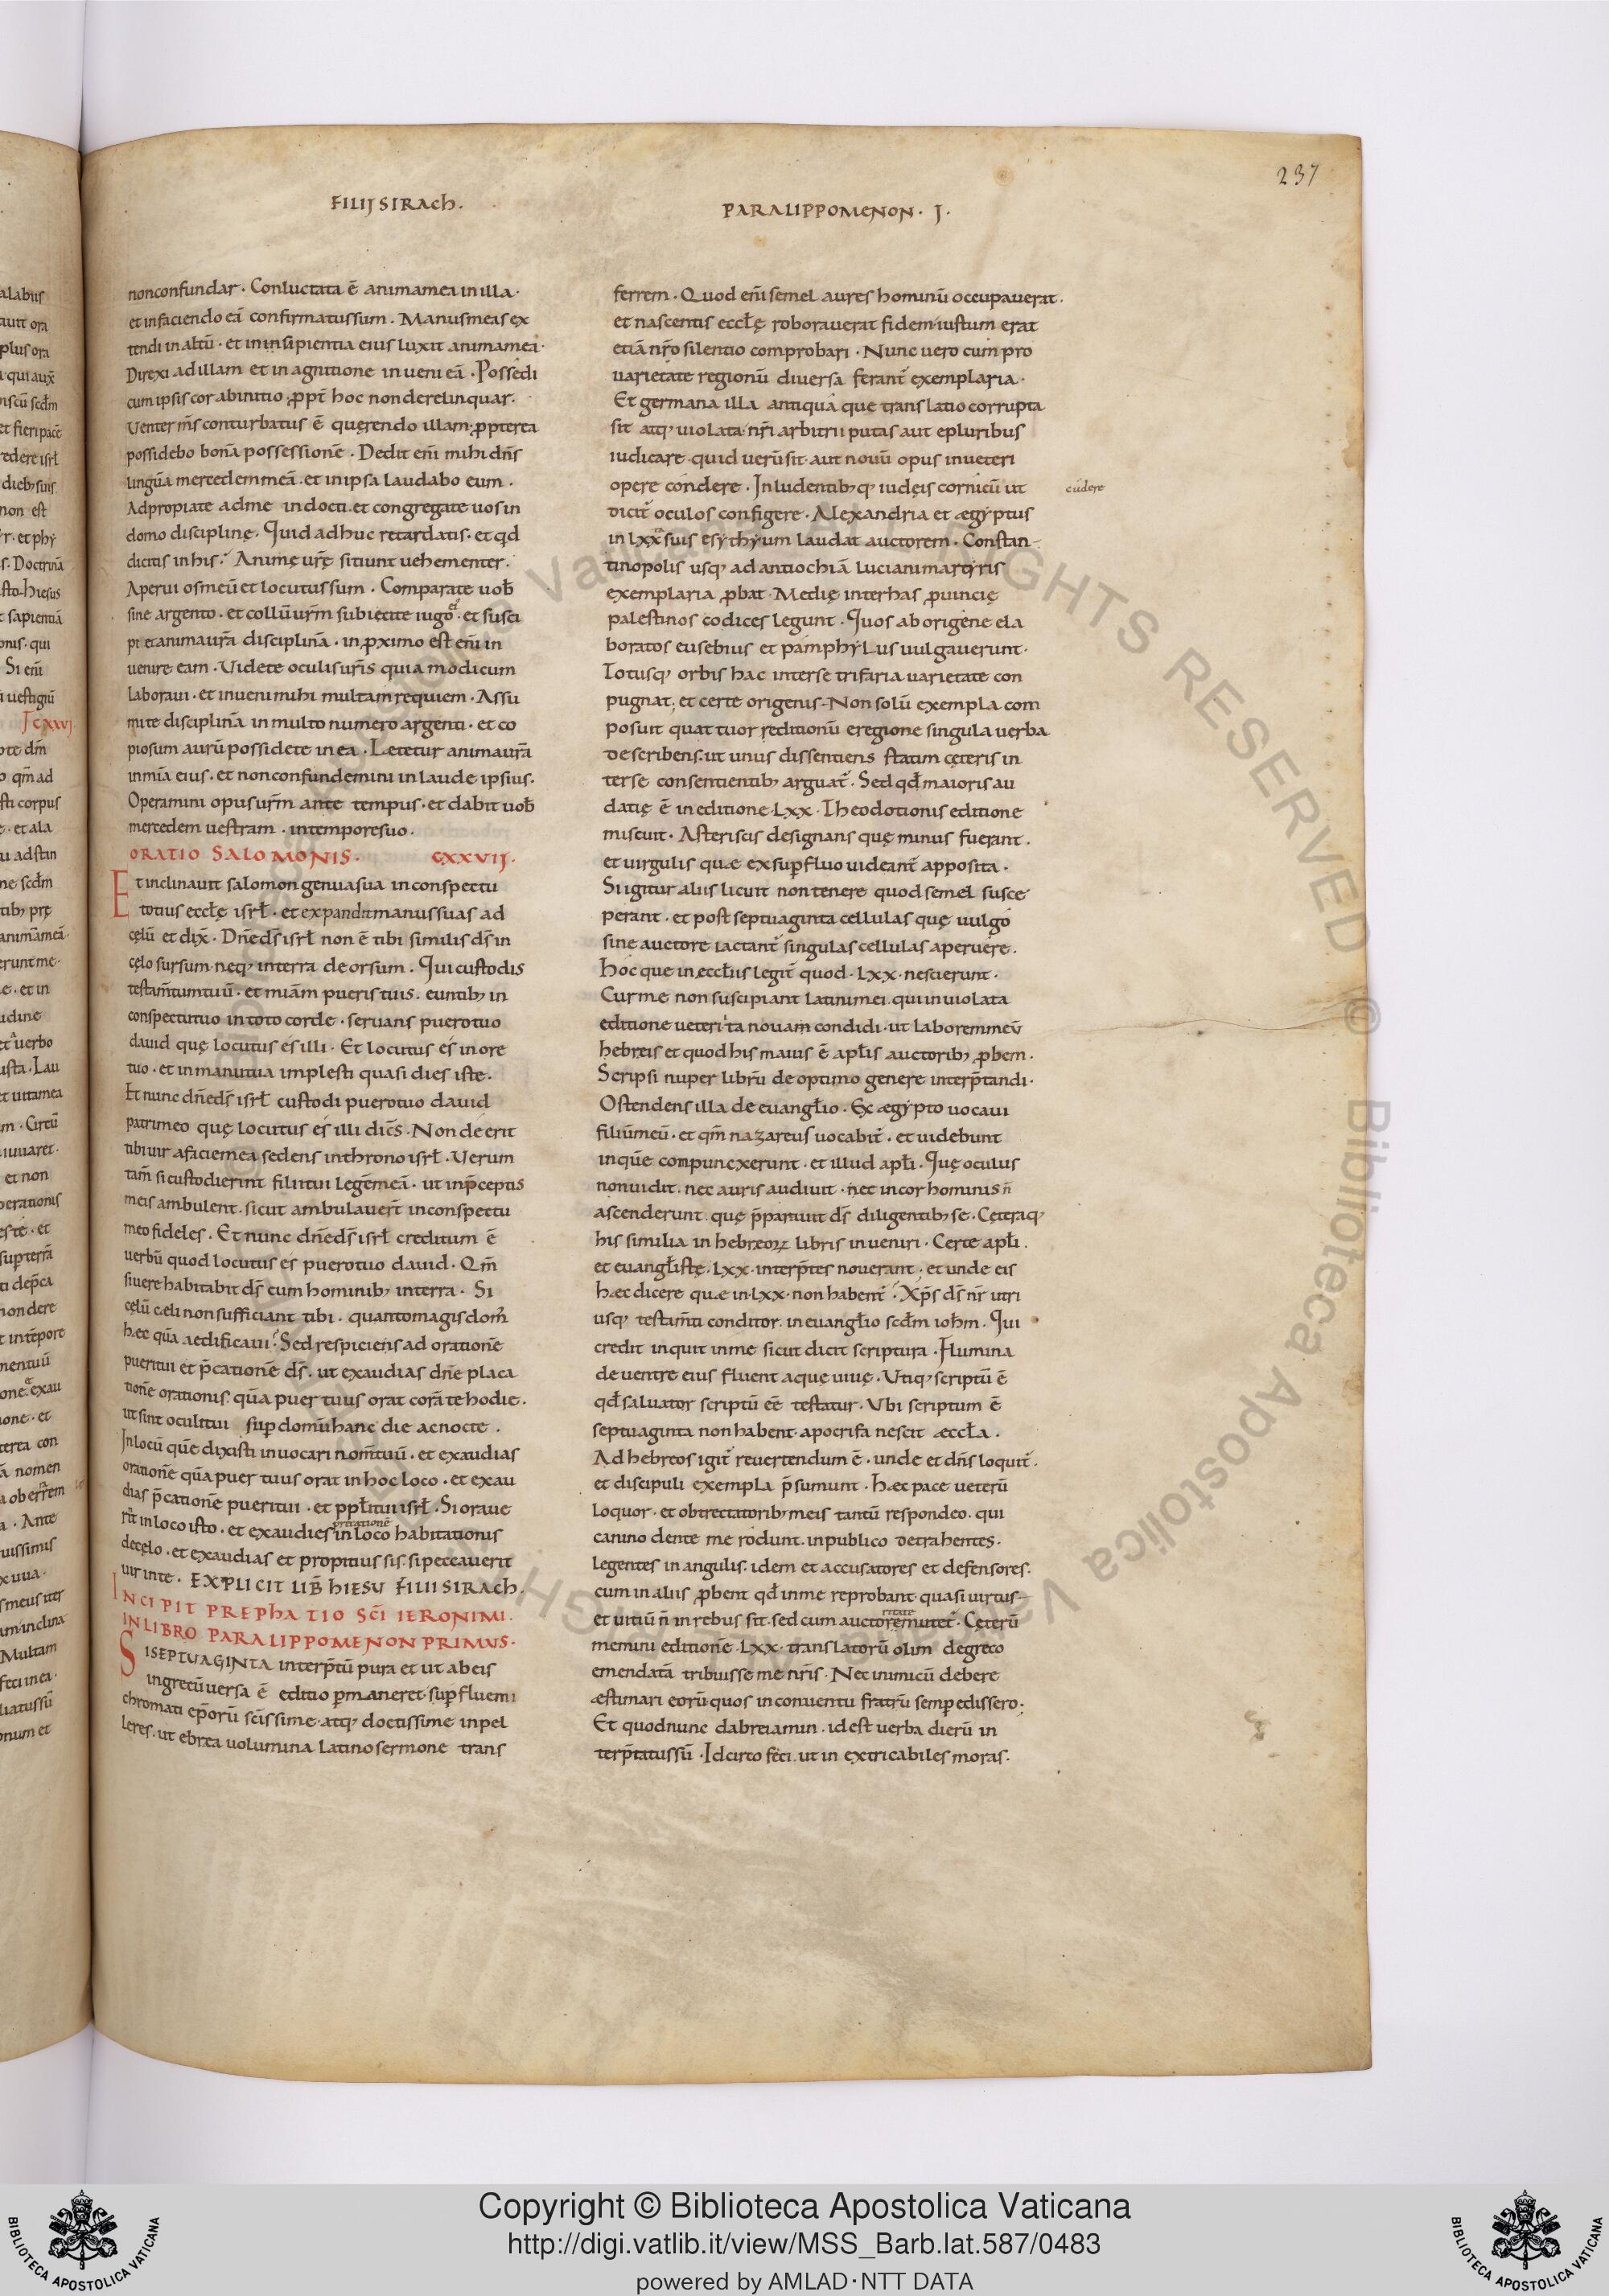 237
FILIJ SIRACH.
nonconfundar. Conluctata ē animamea in illa.
et in faciendo eā confirmatussum. Manusmeas ex
tendi in altū. et in insipientia eius luxit animamea.
Direxi ad illam et in agnitione inueni eā. Possedi
cum ipsis cor abinitio, ꝓpt̄ hoc non derelinquar.
Uenter m̄s conturbatus ē querendo illam. ꝓpterea
possidebo bonā possessionē. Dedit eni̅ mihi dn̄s
linguā mercedem meā. et in ipsa laudabo eum.
Adpropiate adme indocti. et congregate uos in
domo disciplinę. Quid adhuc retardatis. et qd
dicitis in his? Animę urę̄ sitiunt uehementer.
Aperui os meū et locutus sum. Comparate uob̄
sine argento. et collū urm̄ subiecite iugo. et susci
piet anima ur̄a disciplinā. in ꝓximo est eni̅ in
uenire eam. Uidete oculis ur̄is quia modicum
laboraui. et inueni mihi multam requiem. Assu
mite disciplinā in multo numero argenti. et co
piosum aurū possidete in ea. Letetur anima ur̄a
in mia̅ eius. et non confundemini in laude ipsius.
Operamini opus urm̄ ante tempus. et dabit uob̄
mercedem uestram. in tempore suo.
ORATIO SALOMONIS. CXXVIJ.
Et inclinauit salomon genua sua in conspectu
totius ecclę isrł. et expandit manus suas ad
cęlū et dix̄. Dn̄e ds̄ isrł non ē tibi similis ds̄ in
cęlo sursum. neq; in terra deorsum. Qui custodis
testam̄tum tuū. et miām pueris tuis. euntib; in
conspectu tuo in toto corde. seruans puero tuo
dauid quę locutus es illi. Et locutus es in ore
tuo. et in manu tua implesti quasi dies iste.
Et nunc dn̄e ds̄ isrł custodi puero tuo dauid
patri meo quę locutus es illi dicēs. Non deerit
tibi uir a facie mea sedens in throno isrł. Uerum
tam̄ si custodierint filii tui legē meā. ut in p̄ceptis
meis ambulent. sicut ambulauer̄t in conspectu
meo fideles. Et nunc dn̄e ds̄ isrł creditum ē
uerbū quod locutus es puero tuo dauid. Qm̄
si uere habitabit ds̄ cum hominib; in terra. Si
cęlū caeli non sufficiant tibi. quanto magis dom̄
haec quā aedificaui? Sed respiciens ad orationē
pueri tui et p̄cationē ds̄. ut exaudias dn̄e placa
tionē orationis. quā puer tuus orat corā te hodie.
ut sint oculi tui sup domū hanc die ac nocte.
In locū quē dixisti inuocari nom̄ tuū. et exaudias
orationē quā puer tuus orat in hoc loco. et exau
dias p̄cationē pueri tui. et ppłi tui isrł. Si oraue
rit in loco isto. et exaudies in loco habitationis
de cęlo. et exaudias et propitius sis. si peccauerit
uir in te. EXPLICIT LIB̄ HIESU FILII SIRACH.
INCIPIT PREPHATIO SC̄I IERONIMI.
IN LIBRO PARALIPPOMENON PRIMUS.
SI SEPTUAGINTA interp̄tū pura et ut ab eis
in grecū uersa ē editio ꝑmaneret. sup flue mi
chromati ep̄orū scīssime. atq; doctissime inpel
leres. ut ebrea uolumina latino sermone trans
PARALIPPOMENON. J.
ferrem. Quod eni̅ semel aures hominū occupauerat.
et nascentis eccłę roborauerat fidem. iustum erat
etiā nr̄o silentio comprobari. Nunc uero cum pro
uarietate regionū diuersa ferant̄ exemplaria.
Et germana illa antiqua que translatio corrupta
sit atq; uiolata. nr̄i arbitrii putas aut e pluribus
iudicare quid uerū sit. aut nouū opus in ueteri
opere condere. Inludentibq; iudęis cornicū ut
cudere
dicit̄ oculos configere. Alexandria et aegyptus
in lxx suis esythyum laudat auctorem. Constan
tinopolis usq; ad antiochiā luciani martyris
exemplaria ꝓbat. Medię inter has ꝓuincię
palestinos codices legunt. Quos ab origene ela
boratos eusebius et pamphylus uulgauerunt.
Totusq; orbis hac inter se trifaria uarietate con
pugnat. et certe origenis. Non solū exempla com
posuit quattuor reditionū e regione singula uerba
describens. ut unus dissentiens statim cęteris in
ter se consentientib; arguat̄. Sed qđ maioris au
datię ē in editione. Lxx. Theodotionis editione
miscuit. Asteriscis designans quę minus fuerant.
et uirgulis quae ex supfluo uideant̄ apposita.
Si igitur aliis licuit non tenere quod semel susce
perant. et post septuaginta cellulas quę uulgo
sine auctore iactant̄ singulas cellulas aperuere.
hoc que in eccłiis legit̄ quod. Lxx. nescierunt.
Cur me non suscipiant latini mei. qui inuiolata
editione ueteri ita nouam condidi. ut laborem meū
hebreis et quod his maius ē apłis auctorib; ꝓbem.
Scripsi nuper librū de optimo genere interp̄tandi.
Ostendens illa de euangło. Ex aegypto uocaui
filiū meū. et qm̄ nazareus uocabit̄. et uidebunt
in quē compunxerunt. et illud apłi. Quę oculus
non uidit. nec auris audiuit. nec in cor hominis n̄
ascenderunt. quę p̄parauit ds̄ diligentib; se. Cęteraq;
his similia in hebreoꝝ libris inueniri. Certe apłi.
et euangłistę. Lxx. interp̄tes nouerant. et unde eis
haec dicere quae in. Lxx. non habent̄? Xp̄s ds̄ nr̄ utri
usq; testam̄ti conditor. in euangło scd̄m ioh̄m. Qui
credit inquit in me sicut dicit scriptura. Flumina
de uentre eius fluent aque uiuę. Utiq; scriptū ē
qđ saluator scriptū ēē testatur. Ubi scriptum ē
septuaginta non habent. apocrifa nescit aeccła.
Ad hebreos igit̄ reuertendum ē. unde et dn̄s loquit̄.
et discipuli exempla p̄sumunt. Haec pace ueterū
loquor. et obtrectatorib; meis tantū respondeo. qui
canino dente me rodunt. in publico detrahentes.
Legentes in angulis. idem et accusatores et defensores.
cum in aliis ꝓbent qđ in me reprobant. quasi uirtus
et uitiū n̄ in rebus sit. sed cum auctore mutet̄. Cęterū
memini editionē. Lxx. translatorū olim de greco
emendatā tribuisse me nr̄is. Nec inimicū debere
aestimari eorū quos in conuentu fratrū semp edissero.
Et quod nunc dabreiamin. id est uerba dierū in
terp̄tatus sū. Idcirco feci. ut inextricabiles moras.
Copyright © Biblioteca Apostolica Vaticana
http://digi.vatlib.it/view/MSS_Barb.lat.587/0483
powered by AMLAD·NTT DATA
BIBLIOTECA APOSTOLICA VATICANA
BIBLIOTECA APOSTOLICA VATICANA